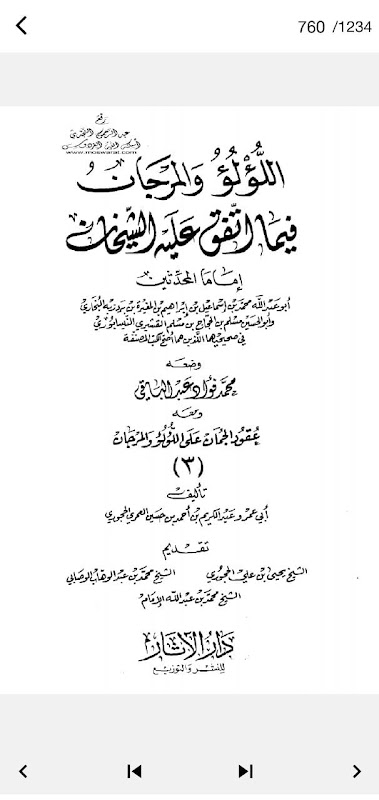 760 /1234
رفع
عبد الرحمن النجدي
أسكنه الله الفردوس
www.moswarat.com
اللُّؤْلُؤُ وَالمَرْجَانُ
فيمَا اتّفقَ عَلَيْه الشّيْخَان
إمَامَا المحَدّثين
أبو عبد الله محمد بن إسماعيل بن إبراهيم بن المغيرة بن بردزبه البخاري
وأبو الحسين مسلم بن الحجاج بن مسلم القشيري النيسابوري
في صحيحيهما اللذين هما أصح الكتب المصنفة
وضعه
محمد فؤاد عبد الباقي
ومعه
عقود الجمان على اللؤلؤ والمرجان
(٣)
تأليف
أبي عمرو عبد الكريم بن أحمد بن حسين العمري الحجوري
تقديم
الشيخ يحيى بن علي الحجوري الشيخ محمد بن عبد الوهاب الوصابي
الشيخ محمد بن عبد الله الإمام
دار الآثار
للنشر والتوزيع